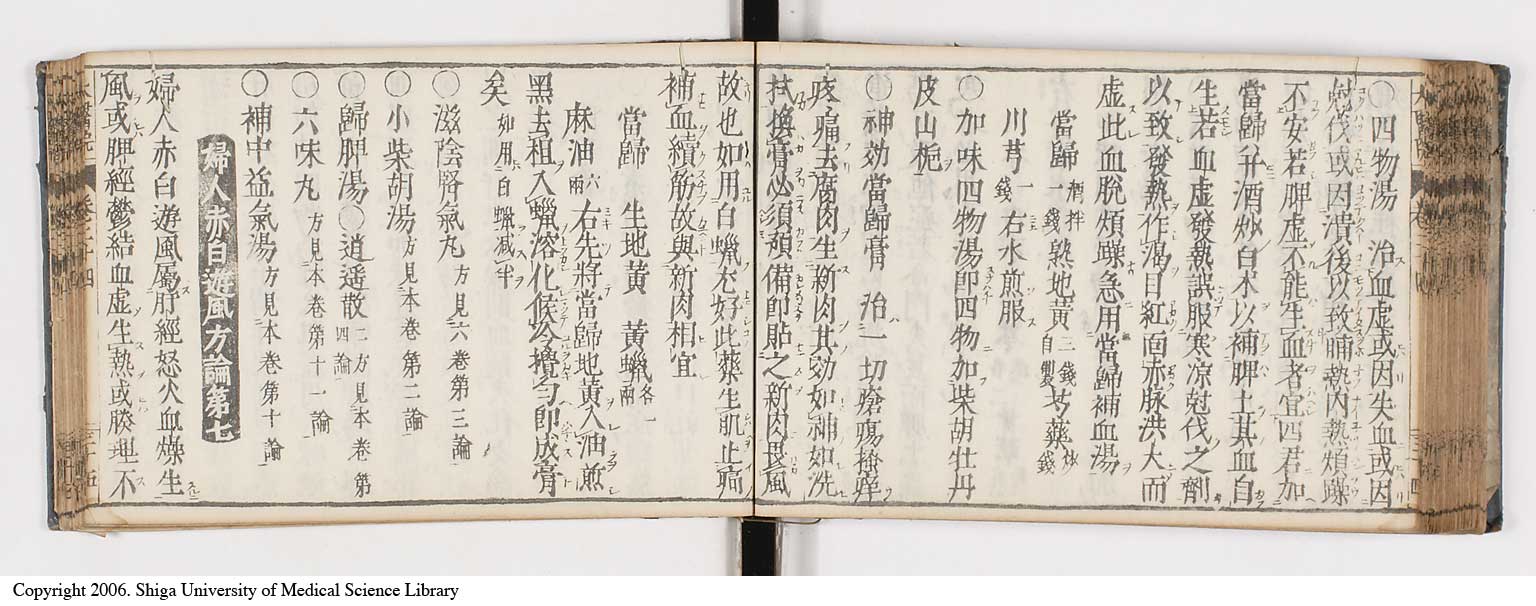 ○四物湯　治血虛或因失血或因
尅伐或因潰後以致晡熱內熱煩躁
不安若脾虛不能生血者宜四君加
當歸并酒炒白朮以補脾土其血自
生若血虛發熱誤服寒凉尅伐之劑
以致發熱作渴目紅面赤脉洪大而
虛此血脫煩躁急用當歸補血湯
當歸酒拌一錢熟地黃三錢自製芍藥
川芎一錢右水煎服
○加味四物湯即四物加柴胡牡丹
皮山梔
○神効當歸膏　治一切瘡瘍
疼痛去腐肉生新肉其効如神如洗
拭換膏必須預備即貼之新肉畏風
故也如用白蠟尤好此藥生肌止痛
補血續筋故與新肉相宜
當歸　生地黃　黃蠟各一兩
麻油六兩右先將當歸地黃入油煎
黑去柤入蠟溶化候冷攪勻即成膏
矣如用白蠟减半
○滋陰腎氣丸方見六卷第三論
○小柴胡湯方見本卷第二論
○歸脾湯○逍遥散二方見本卷第四論
○六味丸方見本卷第十一論
○補中益氣湯方見本卷第十論
婦人赤白遊風方論第七
婦人赤白遊風屬肝經怒火血燥生
風或脾經鬱結血虛生熱或腠理不
Copyright 2006. Shiga University of Medical Science Library